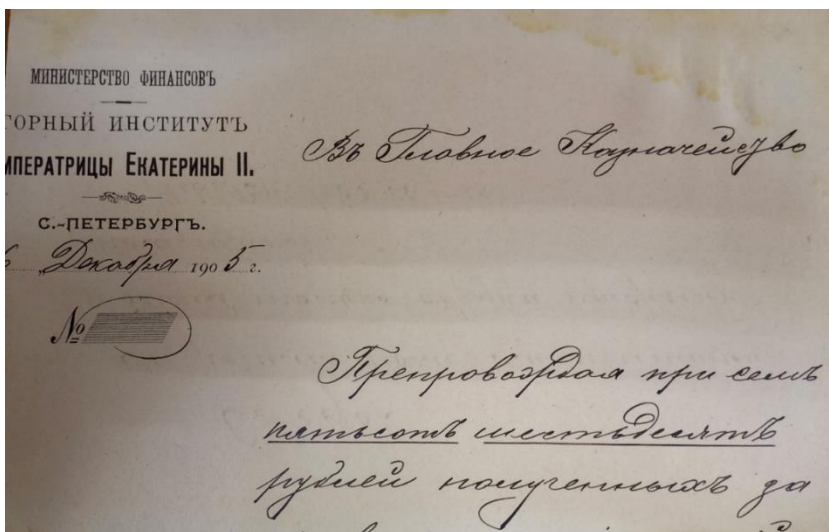 МИНИСТЕРСТВО ФИНАНСОВЪ
ГОРНЫЙ ИНСТИТУТЪ
ИМПЕРАТРИЦЫ ЕКАТЕРИНЫ II.
С.-ПЕТЕРБУРГЪ.
6 Декабря 1905 г.
№
Въ Главное Казначейство
Препровождая при семъ
пятьсотъ шестьдесятъ
рублей полученныхъ за